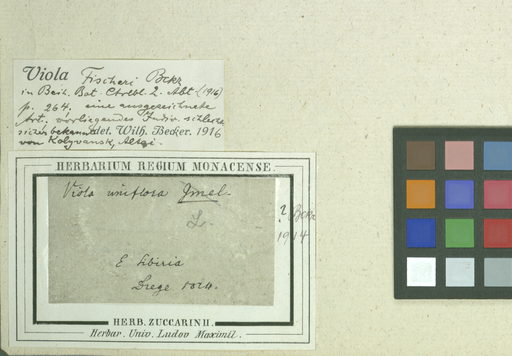 Viola Fischeri Bckr
in Beih. Bot. Ctrlbl. 2. Abt (1916)
p. 264. eine ausgezeichnete
Art. vorliegendes Indiv.
det. Wilh. Becker. 1916
von Kolyvansk, Altai.
HERBARIUM REGIUM MONACENSE.
Viola uniflora Gmel.
L.
? Bckr
1914
E Sibiria
1824.
HERB. ZUCCARINII.
Herbar. Univ. Ludov. Maximil.